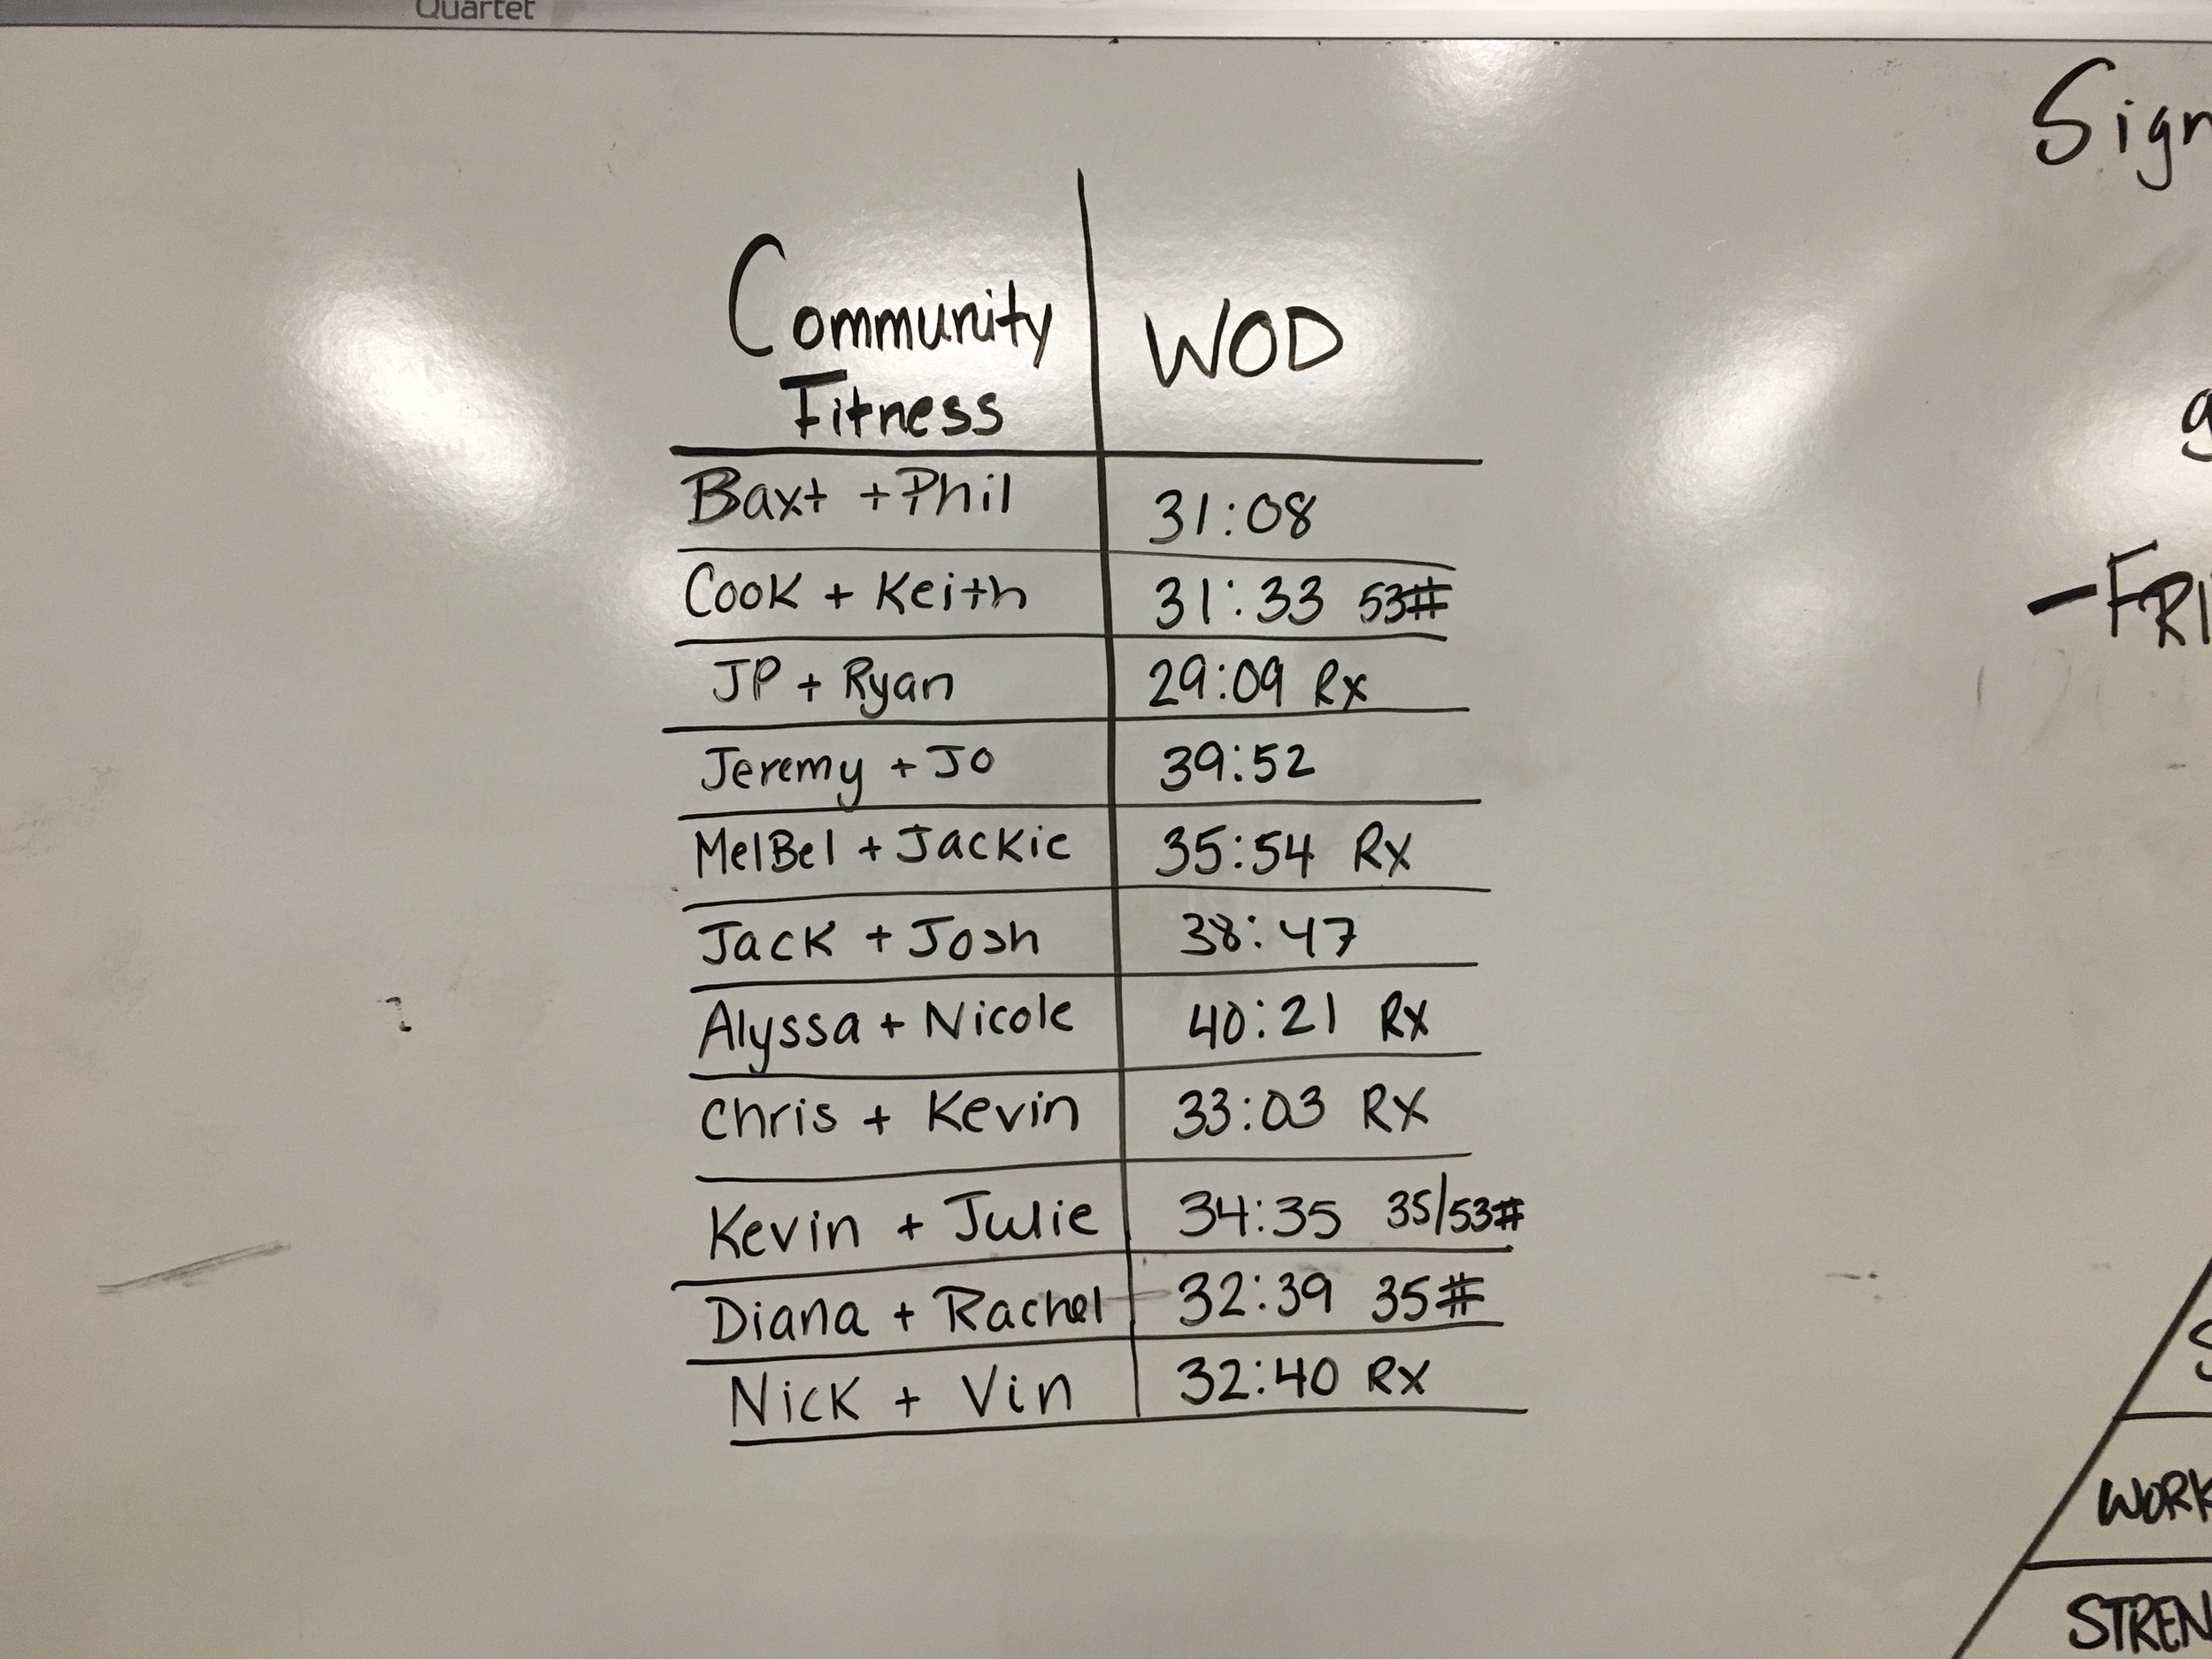 Quartet
Community
Fitness
WOD
Baxt + Phil 31:08
Cook + Keith 31:33 53#
JP + Ryan 29:09 Rx
Jeremy + Jo 39:52
MelBel + Jackie 35:54 Rx
Jack + Josh 38:47
Alyssa + Nicole 40:21 Rx
Chris + Kevin 33:03 Rx
Kevin + Julie 34:35 35/53#
Diana + Rachel 32:39 35#
Nick + Vin 32:40 Rx
Sign
g
-FRI
S
WORK
STREN